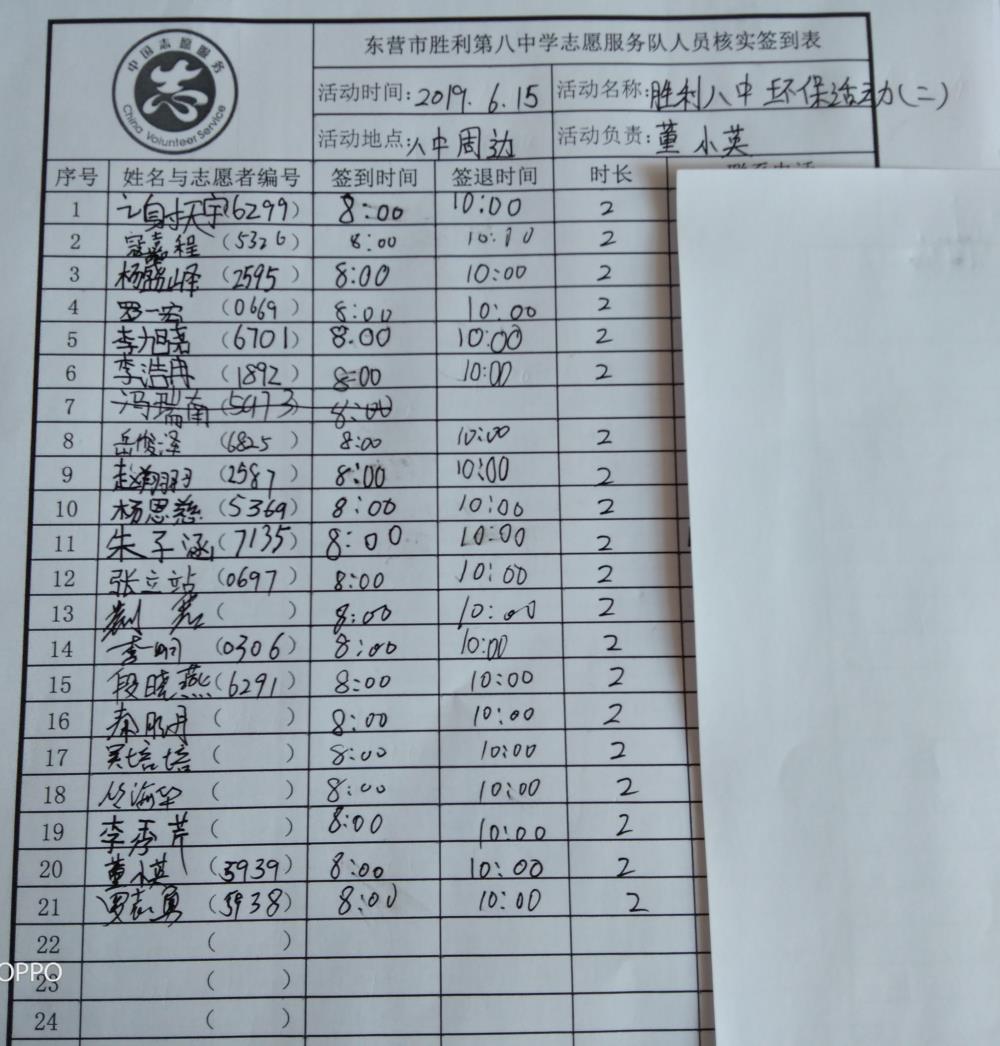 中国志愿服务
China Volunteer Service
东营市胜利第八中学志愿服务队人员核实签到表
活动时间:2019.6.15 活动名称:胜利八中环保活动(二)
活动地点:八中周边 活动负责:董小英
序号 姓名与志愿者编号 签到时间 签退时间 时长
1 谢天宇(6299) 8:00 10:00 2
2 寇嘉程(5326) 8:00 10:00 2
3 (2595) 8:00 10:00 2
4 罗一宏(0669) 8:00 10:00 2
5 李旭嘉(6701) 8:00 10:00 2
6 李浩冉(1892) 8:00 10:00 2
7 冯瑞南(5973) 8:00
8 岳俊泽(6825) 8:00 10:00 2
9 赵翔羽(2587) 8:00 10:00 2
10 杨思慈(5369) 8:00 10:00 2
11 朱子涵(7135) 8:00 10:00 2
12 张立站(0697) 8:00 10:00 2
13 ( ) 8:00 10:00 2
14 李明(0306) 8:00 10:00 2
15 段晓燕(6291) 8:00 10:00 2
16 秦明月( ) 8:00 10:00 2
17 吴培培( ) 8:00 10:00 2
18 ( ) 8:00 10:00 2
19 李秀芹( ) 8:00 10:00 2
20 董小英(5939) 8:00 10:00 2
21 罗志勇(5938) 8:00 10:00 2
22 ( )
23 ( )
24 ( )
OPPO